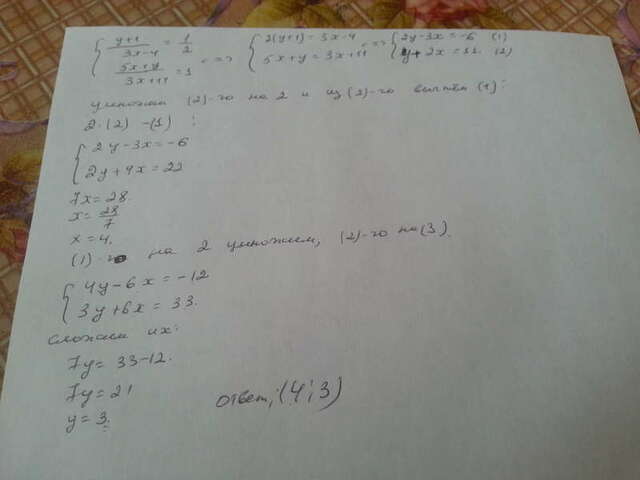 { (y+1)/(3x-4) = 1/2 <=> { 2(y+1) = 3x-4 <=> { 2y-3x = -6 (1)
(5x+y)/(3x+11) = 1 5x+y = 3x+11 y+2x = 11. (2)
умножаем (2)-го на 2 и из (2)-го вычтем (1):
2·(2) -(1) :
{ 2y-3x=-6
2y+4x=22
7x=28.
x=28/7
x=4.
(1)-го на 2 умножаем, (2)-го на (3).
{ 4y-6x = -12
3y+6x = 33.
сложаем их:
7y= 33-12.
7y= 21
y= 3.
ответ; (4;3)